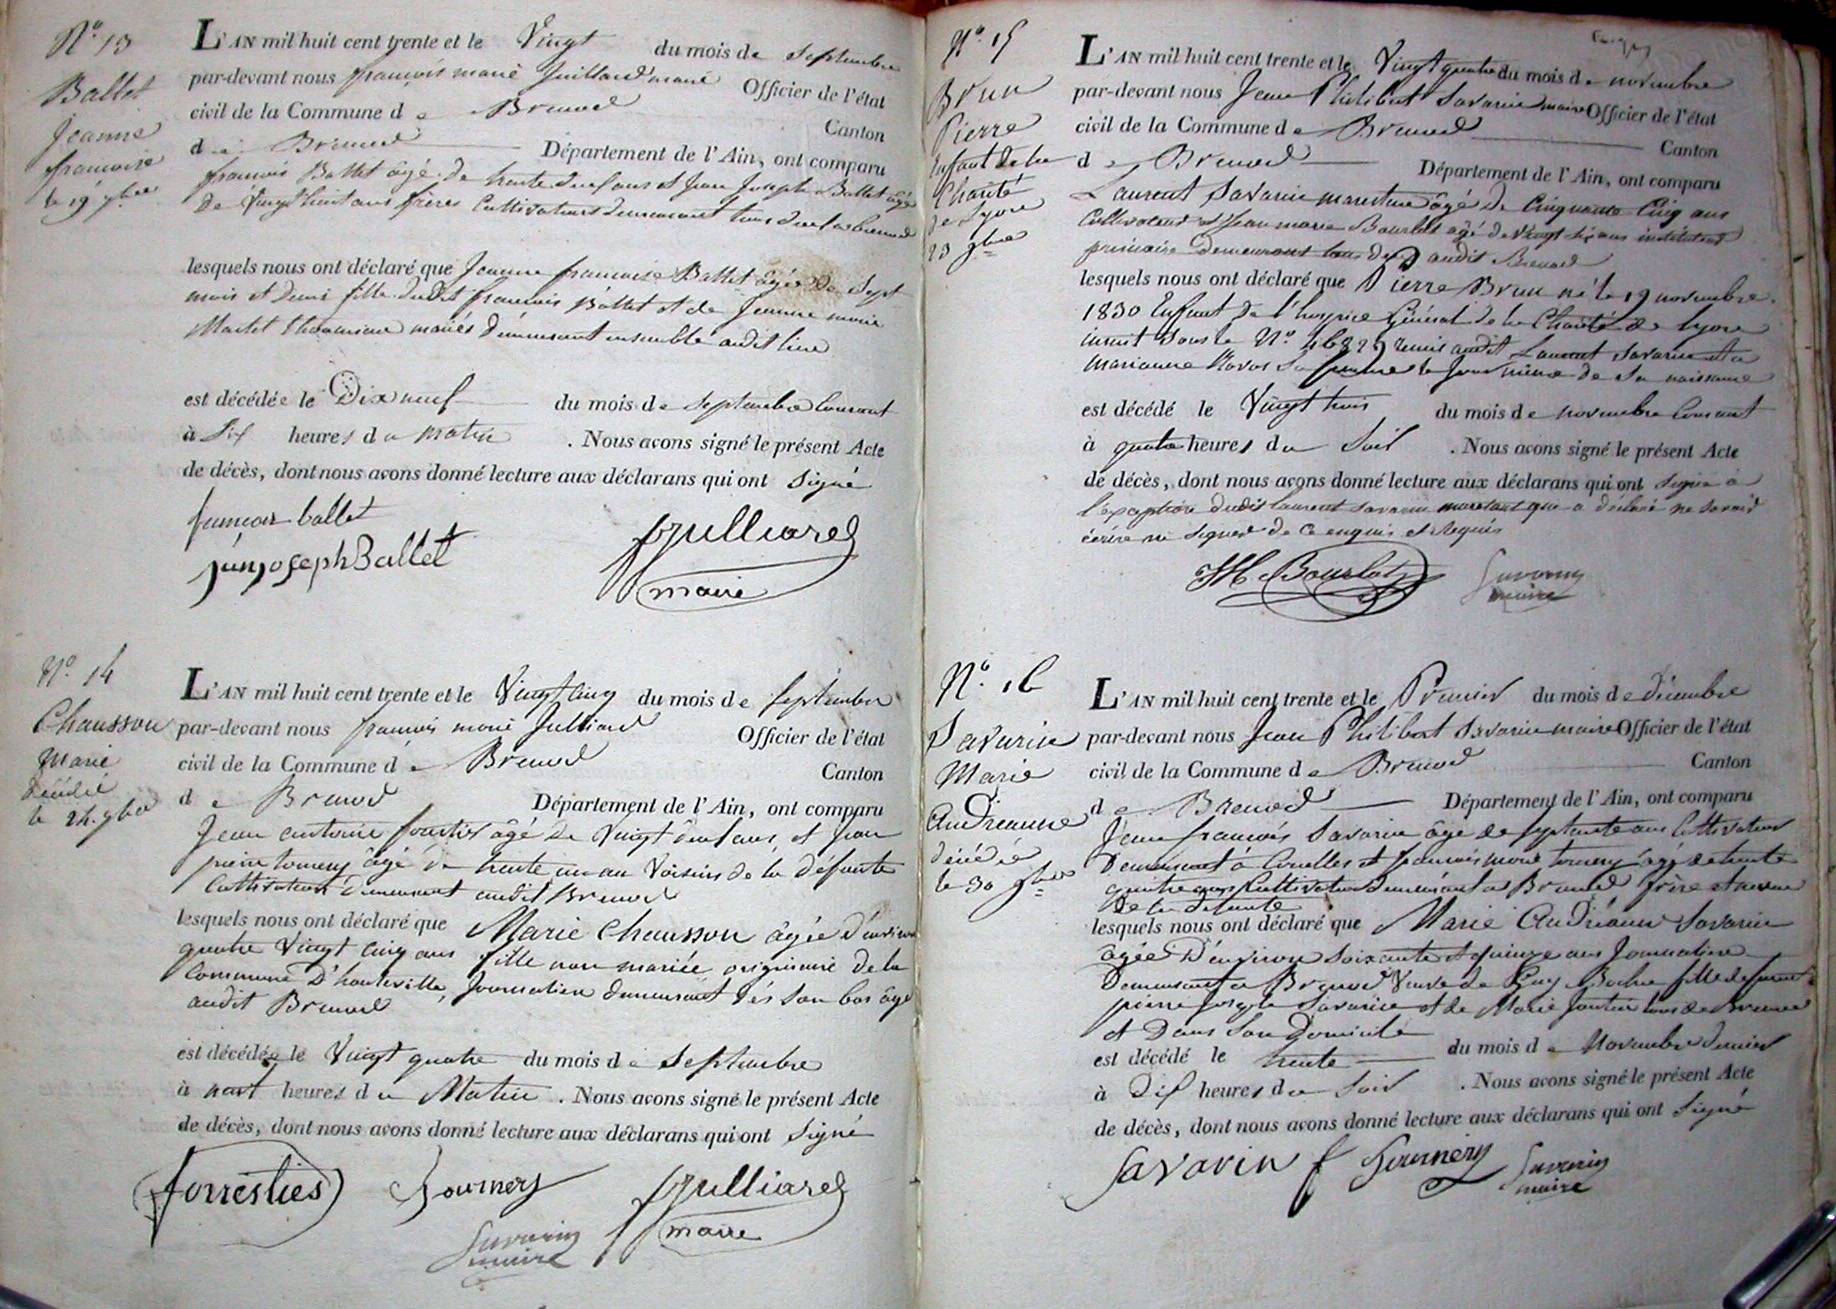 N.o 13
Ballet
Jeanne
francoise
le 19 7bre
L'AN mil huit cent trente et le Vingt du mois de Septembre
par-devant nous francois marie Juilliard maire Officier de l'état
civil de la Commune de Brenod Canton
de Brenod Département de l'Ain, ont comparu
francois Ballet âgé de trente deux ans et Jean Joseph Ballet âgé
de Vingt huit ans frères Cultivateurs demeurant tous deux a Brenod
lesquels nous ont déclaré que Jeanne francoise Ballet âgée de Sept
mois et demi fille dudit francois Ballet et de Jeanne marie
Martel mariés demeurant ensemble audit lieu
est décédée le Dix neuf du mois de Septembre Courant
à Six heures du matin . Nous avons signé le présent Acte
de décès, dont nous avons donné lecture aux déclarans qui ont Signé
francois ballet
janjosephBallet
fjulliard
maire
N.o 14
Chausson
Marie
décédée
le 24. 7bre
L'AN mil huit cent trente et le Vingt cinq du mois de Septembre
par-devant nous francois marie Julliard Officier de l'état
civil de la Commune de Brenod Canton
de Brenod Département de l'Ain, ont comparu
Jean antoine forestier âgé de Vingt deux ans, et Jean
pierre tournery âgé de trente un an Voisins de la défunte
Cultivateurs demeurant audit Brenod
lesquels nous ont déclaré que Marie Chausson âgée d'environ
quatre Vingt cinq ans fille non mariée, originaire de la
Commune D'hauteville, Journalière demeurant dès son bas âge
audit Brenod
est décédée le Vingt quatre du mois de Septembre
à neuf heures du Matin . Nous avons signé le présent Acte
de décès, dont nous avons donné lecture aux déclarans qui ont Signé
forresties
Tournery
fjulliard
maire
Savarin
maire
N.o 15
Brun
Pierre
Enfant de la
Charité
de Lyon
23 9bre
L'AN mil huit cent trente et le Vingt quatre du mois de novembre
par-devant nous Jean Philibert Savarin maire Officier de l'état
civil de la Commune de Brenod Canton
de Brenod Département de l'Ain, ont comparu
Laurent Savarin maretan âgé de Cinquante Cinq ans
Cultivateur et Jean marie Bourlot âgé de Vingt six ans instituteur
primaire demeurant tous deux audit Brenod
lesquels nous ont déclaré que Pierre Brun né le 19 novembre
1830 Enfant de l'hospice Général de la Charité de Lyon
inscrit sous le N.o remis audit Laurent Savarin et a
marianne Ravos sa femme le Jour même de sa naissance
est décédé le Vingt trois du mois de novembre Courant
à quatre heures du Soir . Nous avons signé le présent Acte
de décès, dont nous avons donné lecture aux déclarans qui ont Signé à
l'exception dudit laurent Savarin maretan qui a déclaré ne Savoir
écrire ni Signer de Ce enquis et Requis
JM Bourlot
Savarin
maire
N.o 16
Savarin
Marie
Andréanne
décédée
le 30 9bre
L'AN mil huit cent trente et le Premier du mois de décembre
par-devant nous Jean Philibert Savarin maire Officier de l'état
civil de la Commune de Brenod Canton
de Brenod Département de l'Ain, ont comparu
Jean francois Savarin âgé de septante ans Cultivateur
Demeurant à Corcelles et francois marie tournery âgé de trente
quatre ans Cultivateur demeurant a Brenod frère et neveu
de la défunte
lesquels nous ont déclaré que Marie Andréanne Savarin
âgée D'environ soixante et quinze ans Journalière
Demeurant a Brenod Veuve de Guy Boche fille de feu
pierre Joseph Savarin et de Marie tous de Brenod
et Dans Son Domicile
est décédé le trente du mois de Novembre dernier
à Dix heures du Soir . Nous avons signé le présent Acte
de décès, dont nous avons donné lecture aux déclarans qui ont Signé
Savarin f Tournery
Savarin
maire